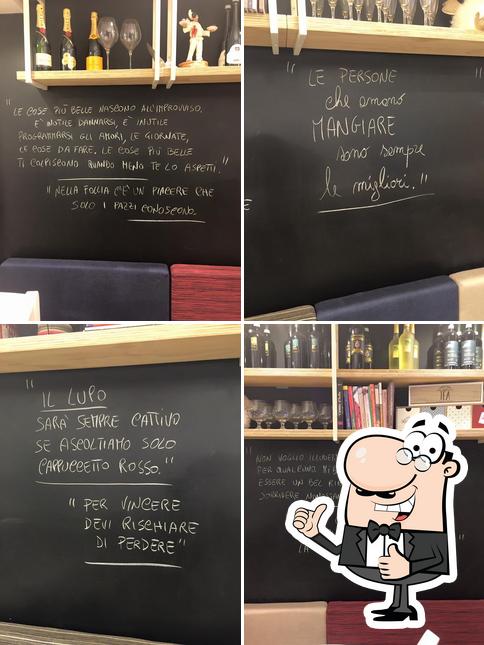 "LE COSE PIÙ BELLE NASCONO ALL'IMPROVVISO.
È INUTILE DANNARSI, È INUTILE
PROGRAMMARSI GLI AMORI, LE GIORNATE,
LE COSE DA FARE. LE COSE PIÙ BELLE
TI COLPISCONO QUANDO MENO TE LO ASPETTI."
"NELLA FOLLIA C'È UN PIACERE CHE
SOLO I PAZZI CONOSCONO.
"LE PERSONE
che amano
MANGIARE
sono sempre
le migliori."
E
"IL LUPO
SARÀ SEMPRE CATTIVO
SE ASCOLTIAMO SOLO
CAPPUCCETTO ROSSO."
"PER VINCERE
DEVI RISCHIARE
DI PERDERE"
NON VOGLIO
PER QUALCUNO
ESSERE UN BEL
SORRIDERE
LA